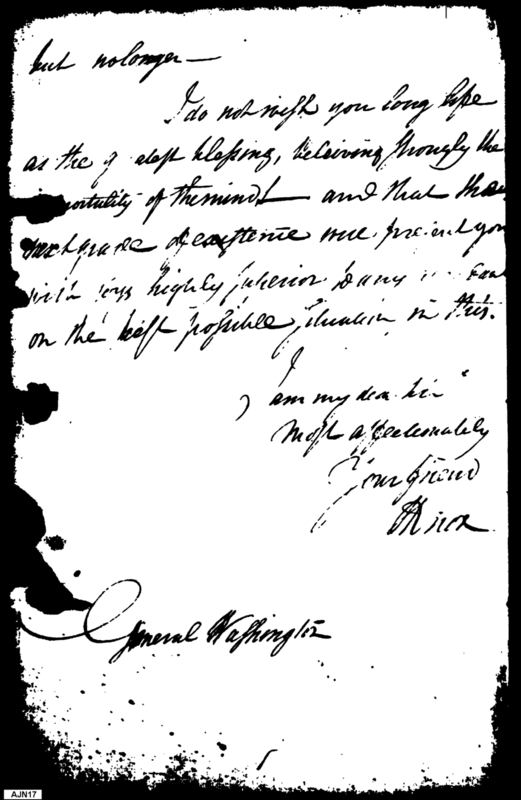 but no longer—
I do not wish you long life
as the greatest blessing, believing strongly the
immortality of the mind and that the
next grade of existence will present you
with joys highly superior to any
on the best possible situation in this.
I
am my dear sir
Most affectionately
Your friend
HKnox
General Washington
AJN17